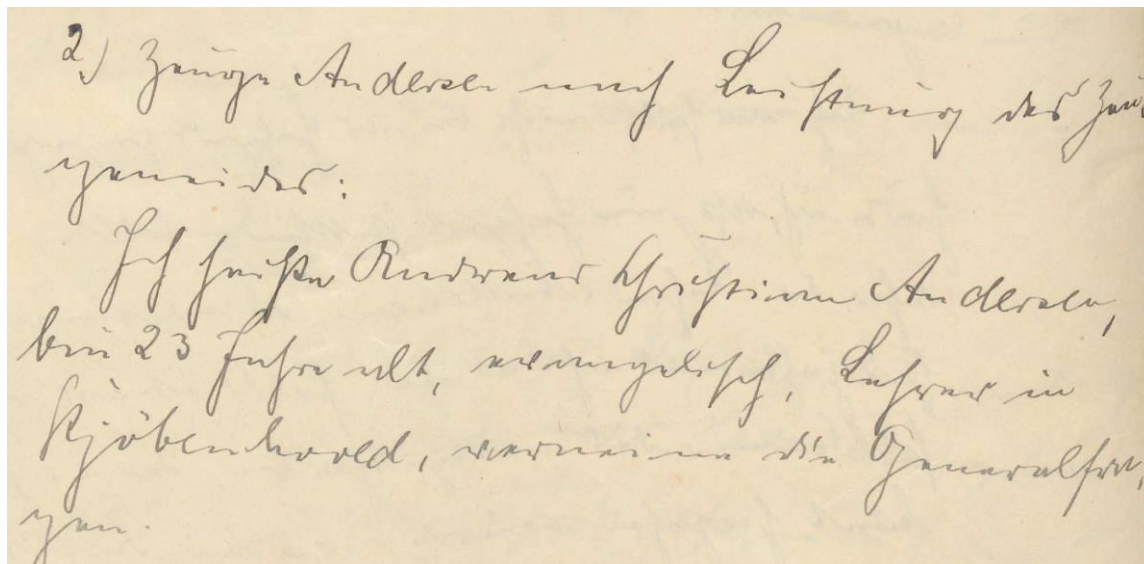 2) Zeuge Andersen nach Leistung des Zeu-
geneides:
Ich heiße Andreas Christian Andersen,
bin 23 Jahre alt, evangelisch, Lehrer in
verneine die Generalfra-
gen.